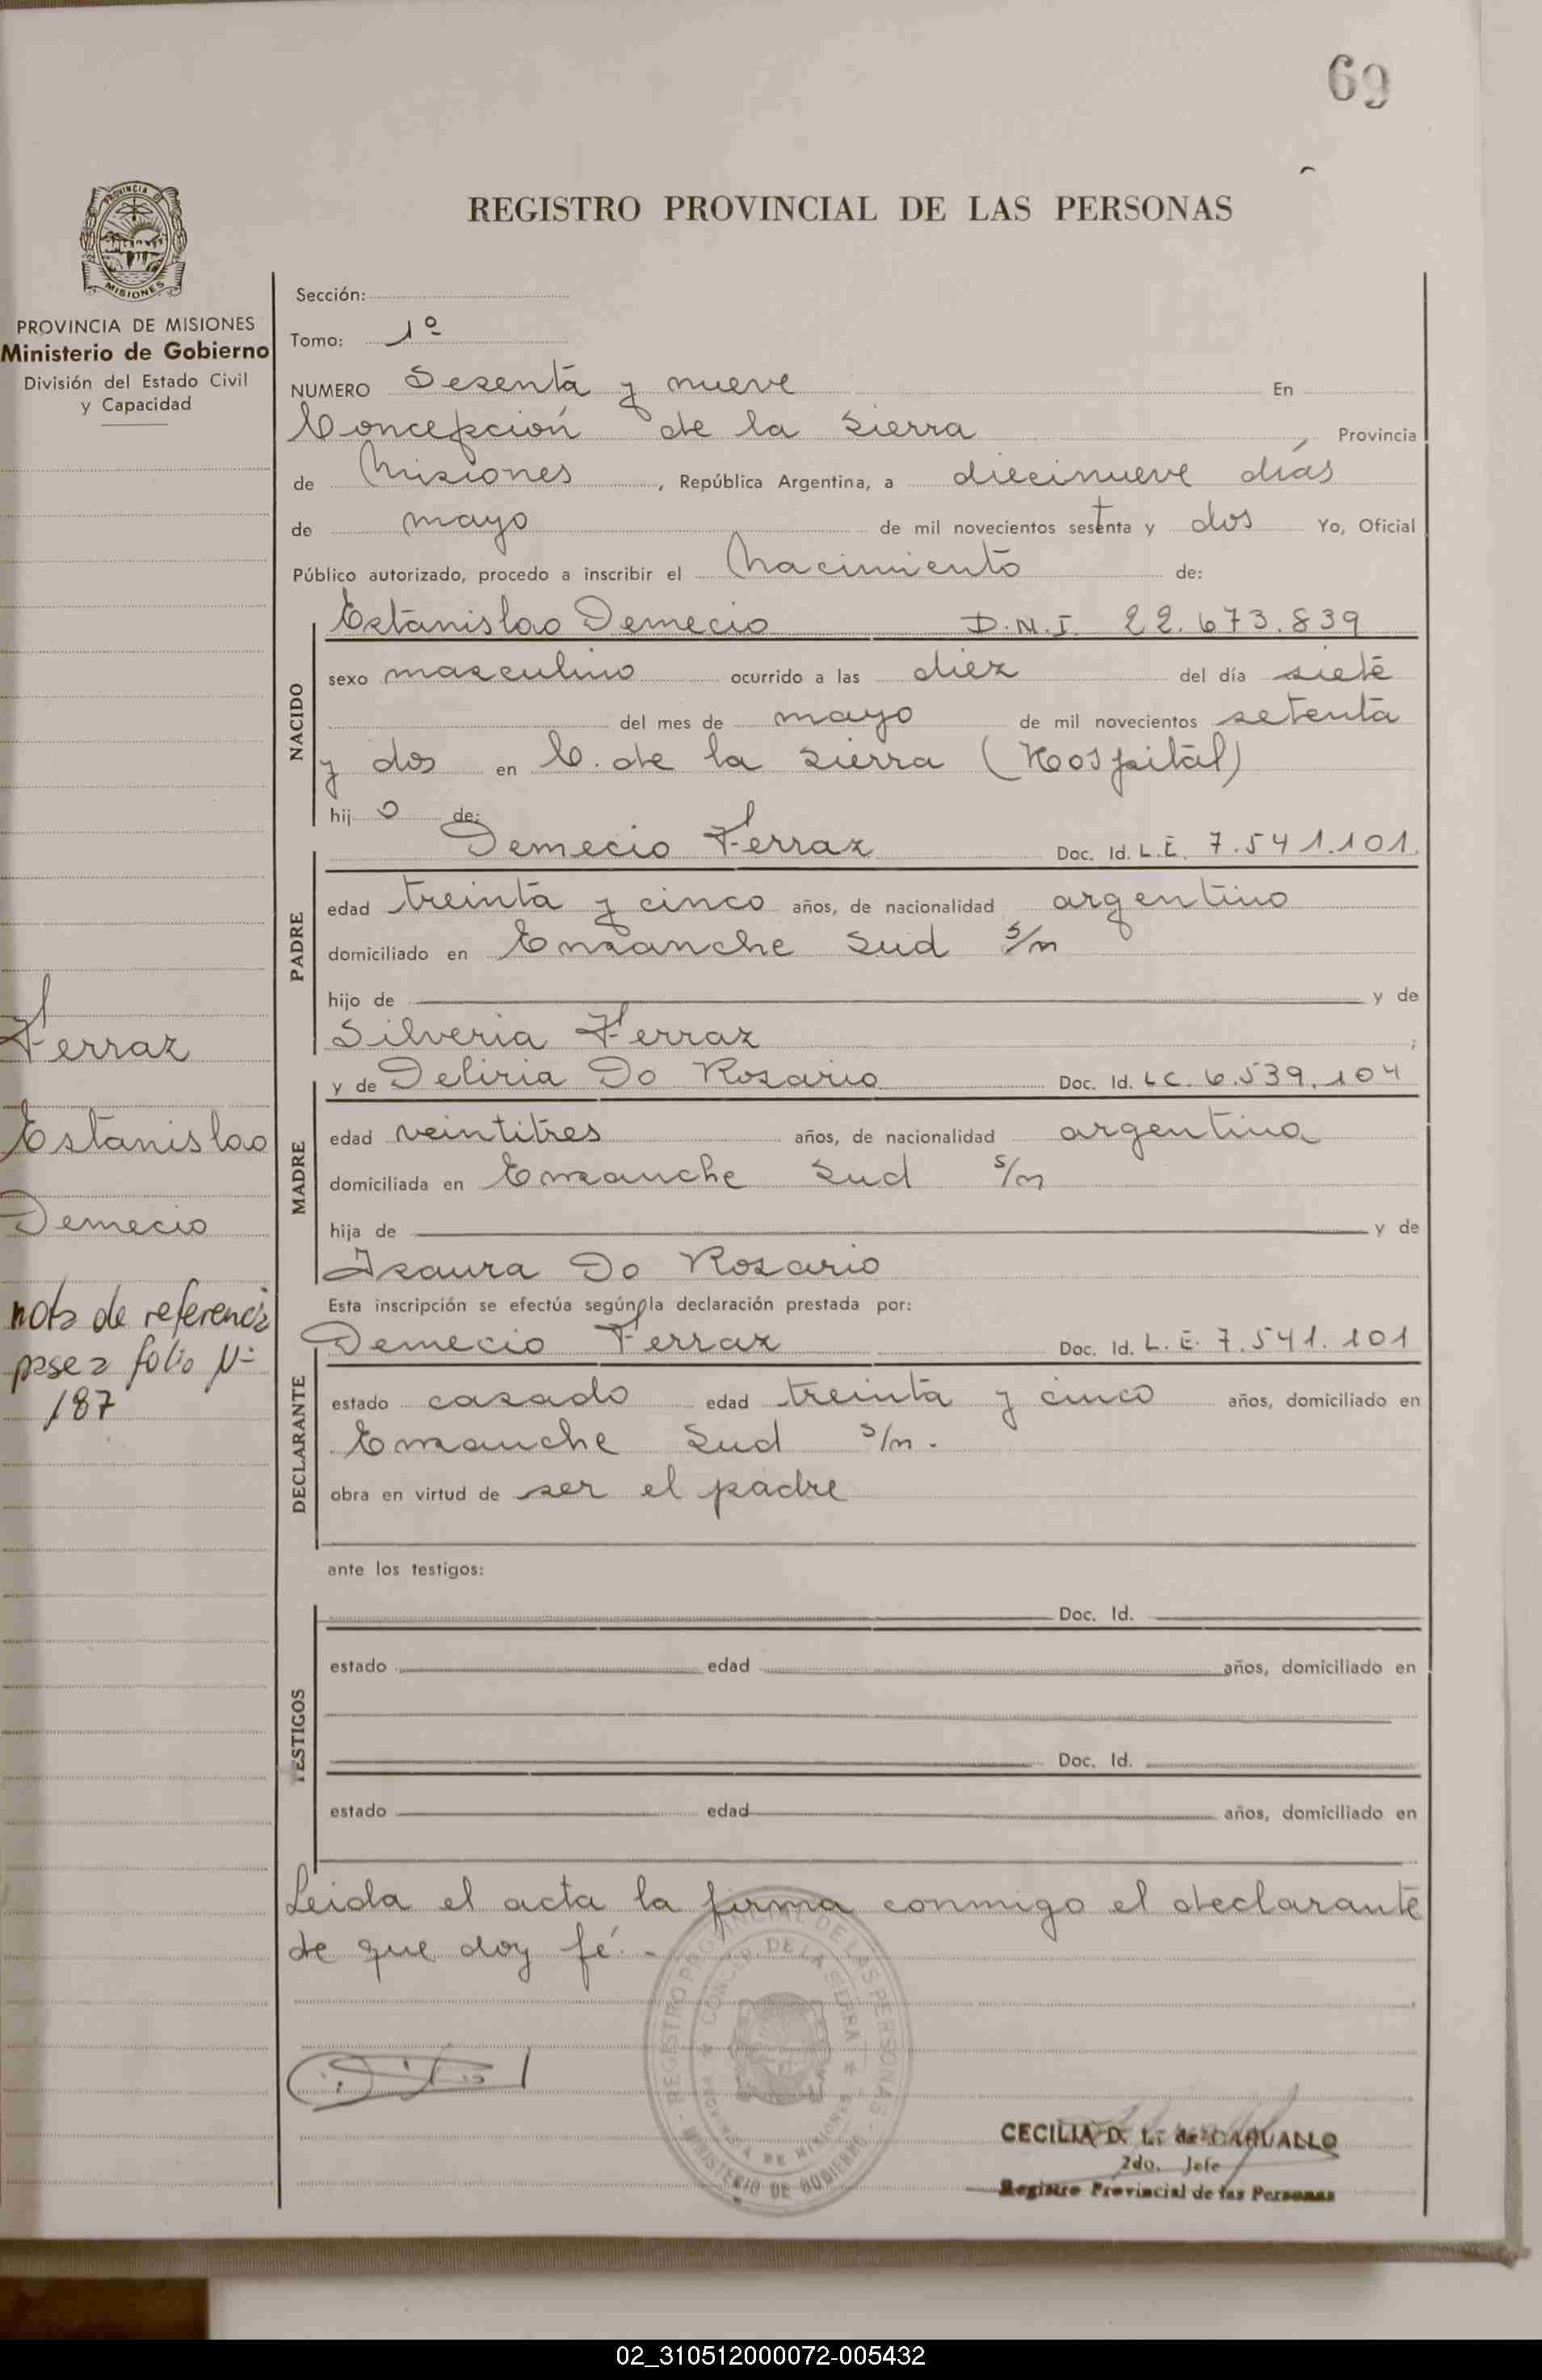 69
REGISTRO PROVINCIAL DE LAS PERSONAS
PROVINCIA DE MISIONES
PROVINCIA DE MISIONES
Ministerio de Gobierno
División del Estado Civil
y Capacidad
Sección:
Tomo: 1º
NUMERO Sesenta y nueve En
Concepción de la Sierra, Provincia
de Misiones, República Argentina, a diecinueve días
de mayo de mil novecientos setenta y dos Yo, Oficial
Público autorizado, procedo a inscribir el Nacimiento de:
NACIDO
Estanislao Demecio D.N.I. 22.673.839
sexo masculino ocurrido a las diez del día siete
del mes de mayo de mil novecientos setenta
y dos en C. de la Sierra (Hospital)
hij o de:
PADRE
Demecio Ferraz Doc. Id. L.E. 7.541.101.
edad treinta y cinco años, de nacionalidad argentino
domiciliado en Ensanche Sud s/n
hijo de y de
Silveria Ferraz ;
MADRE
y de Deliria Do Rosario Doc. Id. LC. 6.539.104
edad veintitres años, de nacionalidad argentina
domiciliada en Ensanche Sud s/n
hija de y de
Isaura Do Rosario
Esta inscripción se efectúa según la declaración prestada por:
DECLARANTE
Demecio Ferraz Doc. Id. L.E. 7.541.101
estado casado edad treinta y cinco años, domiciliado en
Ensanche Sud s/n.
obra en virtud de ser el padre
ante los testigos:
TESTIGOS
Doc. Id.
estado edad años, domiciliado en
Doc. Id.
estado edad años, domiciliado en
Leida el acta la firma conmigo el declarante
de que doy fé.-
Ferraz
Estanislao
Demecio
nota de referencia
pase a folio Nº
187
REGISTRO PROVINCIAL DE LAS PERSONAS
CONCEP. DE LA SIERRA
PROVINCIA DE MISIONES
MINISTERIO DE GOBIERNO
CECILIA D. L. de
2do. Jefe
Registro Provincial de las Personas
02_310512000072-005432